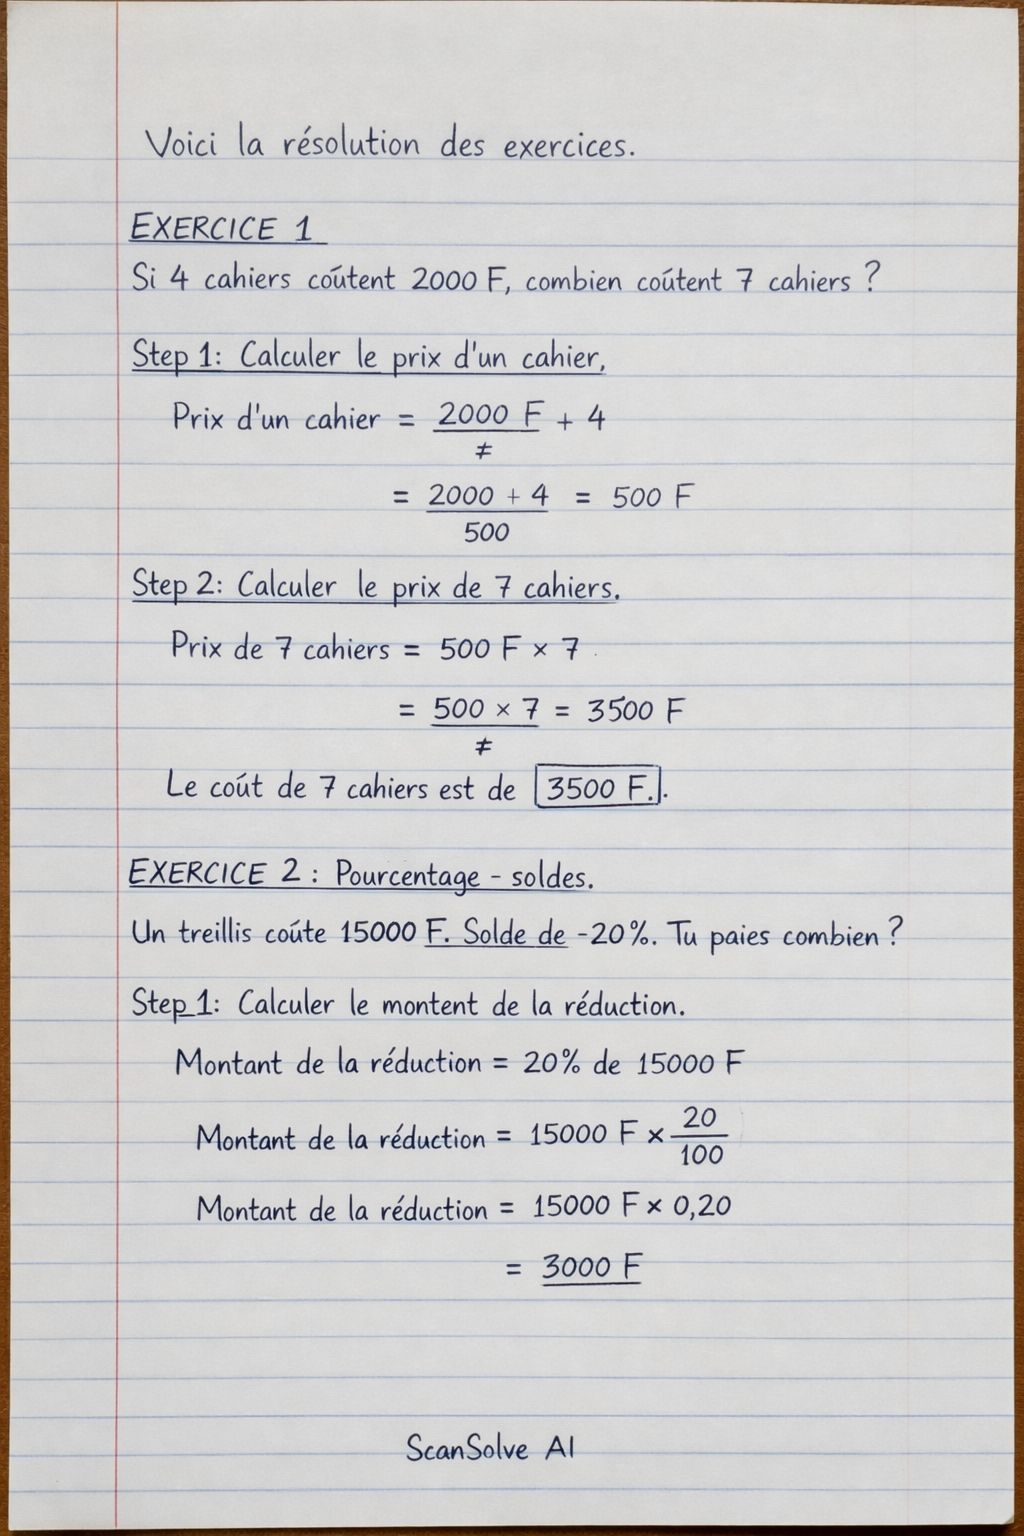 Voici la résolution des exercices.
EXERCICE 1
Si 4 cahiers coûtent 2000 F, combien coûtent 7 cahiers ?
Step 1: Calculer le prix d'un cahier.
Prix d'un cahier = 2000 F + 4
≠
= 2000 + 4 = 500 F
500
Step 2: Calculer le prix de 7 cahiers.
Prix de 7 cahiers = 500 F × 7
= 500 × 7 = 3500 F
≠
Le coût de 7 cahiers est de 3500 F..
EXERCICE 2 : Pourcentage - soldes.
Un treillis coûte 15000 F. Solde de -20%. Tu paies combien ?
Step 1: Calculer le montent de la réduction.
Montant de la réduction = 20% de 15000 F
Montant de la réduction = 15000 F × 20/100
Montant de la réduction = 15000 F × 0,20
= 3000 F
ScanSolve AI